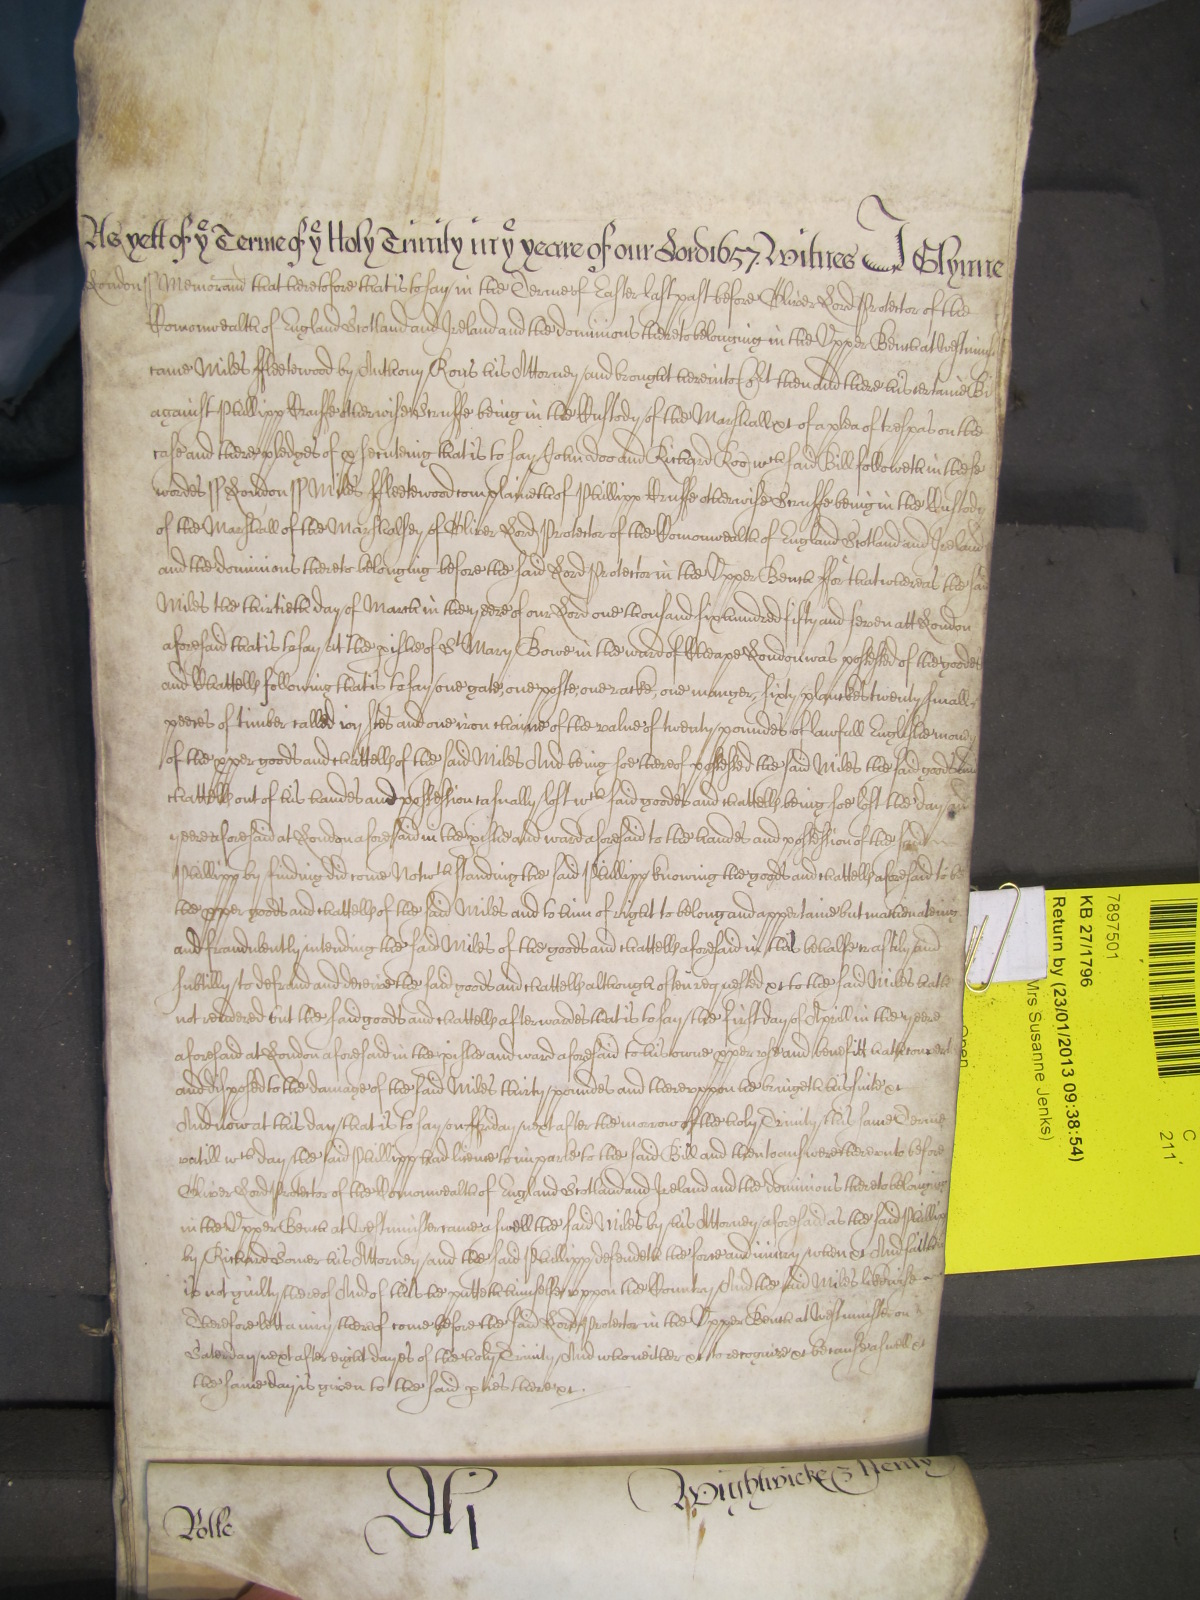 As yett of yͤ Terme of yͤ Holy Trinity in yͤ yeare of our Lord 1657. Witnes J Glynne
London ss Memorand that heretofore that is to say in the Terme of Easter last past before Oliver Lord Protector of the
Comonwealth of England Scotland and Ireland and the dominions thereto belonging in the Upper Bench at Westminst
came Miles ffleetewood by Anthony Rous his Attorney and brought here into Cort then and there his certaine Bi
against Phillipp Cruffe otherwise Scruffe being in the Custody of the Marshall xc of a plea of trespas on the
case and there pledges of psecuteing that is to say John Doo and Richard Roo wch said Bill followeth in these
wordes ss London ss Miles ffleetewood complaineth of Phillipp Cruffe otherwise Scruffe being in the Custody
of the Marshall of the Marshalsey of Oliver Lord Protector of the Comonwealth of England Scotland and Ireland
and the dominions thereto belonging before the said Lord Protector in the Upper Bench ffor that whereas the said
Miles the thirtieth day of March in the yeere of our Lord one thousand six hundred fifty and seven att London
aforesaid that is to say at the pishe of St Mary Bowe in the ward of Cheape London was possessed of the goodes
and Chattells following that is to say one gate, one poste, one racke, one manger, sixty planckes twenty small
peeces of timber called ioystes and one iron chaine of the value of twenty poundes of lawfull English money
of the pper goods and chattells of the said Miles And being soe thereof possessed the said Miles the said goods and
chattells out of his handes and possession casually lost wch said goodes and chattells being soe lost the day and
yeere aforesaid at London aforesaid in the pishe and ward aforesaid to the handes and possession of the said
Phillipp by finding did come Notwthstanding the said Phillipp knowing the goods and chattells aforesaid to be
the pper goods and chattells of the said Miles and to him of right to belong and appertaine but machinateing
and fraudulently intending the said Miles of the goods and chattells aforesaid in this behalfe craftily and
subtilly to defraud and deceive the said goods and chattells although often requested xc to the said Miles hath
not rendered but the said goods and chattells afterwardes that is to say the first day of Aprill in the yeere
aforesaid at London aforesaid in the pishe and ward aforesaid to his owne pper use and benefitt hath convert
and disposed to the damage of the said Miles thirty poundes and thereuppon he bringeth his suite xc
And now at this day that is to say on ffriday next after the morrow of the holy Trinity this same Terme
untill wch day the said Phillipp had licence to imparle to the said Bill and then to answere thereunto before
Oliver Lord Protector of the Comonwealth of England Scotland and Ireland and the dominions thereto belonging
in the Upper Bench at Westminster came aswell the said Miles by his Attorney aforesaid as the said Phillip
by Richard Bomer his Attorney and the said Phillipp defendeth the force and iniury when xc And saith he
is not guilty thereof And of this he putteth himselfe uppon the Country And the said Miles likewise
Therefore lett a iury thereof come before the said Lord Protector in the Upper Bench at Westminster on
Saterday next after eight dayes of the holy Trinity And who neither xc to recognize xc because aswell xc
the same day is given to the said pties there xc.
Rolle
Wightwicke & Henly
7897501
KB 27/1796
Return by (23/01/2013 09:38:54)
Mrs Susanne Jenks)
Open
C
211